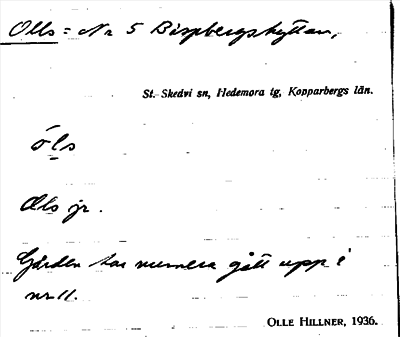 Olls = Nr 5 Bispbergshyttan,
St. Skedvi sn, Hedemora tg, Kopparbergs län.
òls
Ols jr.
Gården har numera gått upp i
nr 11.
OLLE HILLNER, 1936.